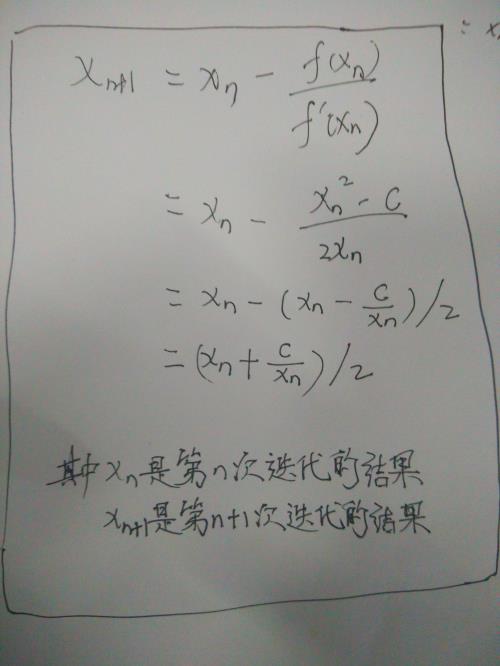 x_{n+1} = x_n - \frac{f(x_n)}{f'(x_n)}
= x_n - \frac{x_n^2 - c}{2x_n}
= x_n - (x_n - \frac{c}{x_n})/2
= (x_n + \frac{c}{x_n})/2
其中 x_n 是第n次迭代的结果
x_{n+1}是第n+1次迭代的结果